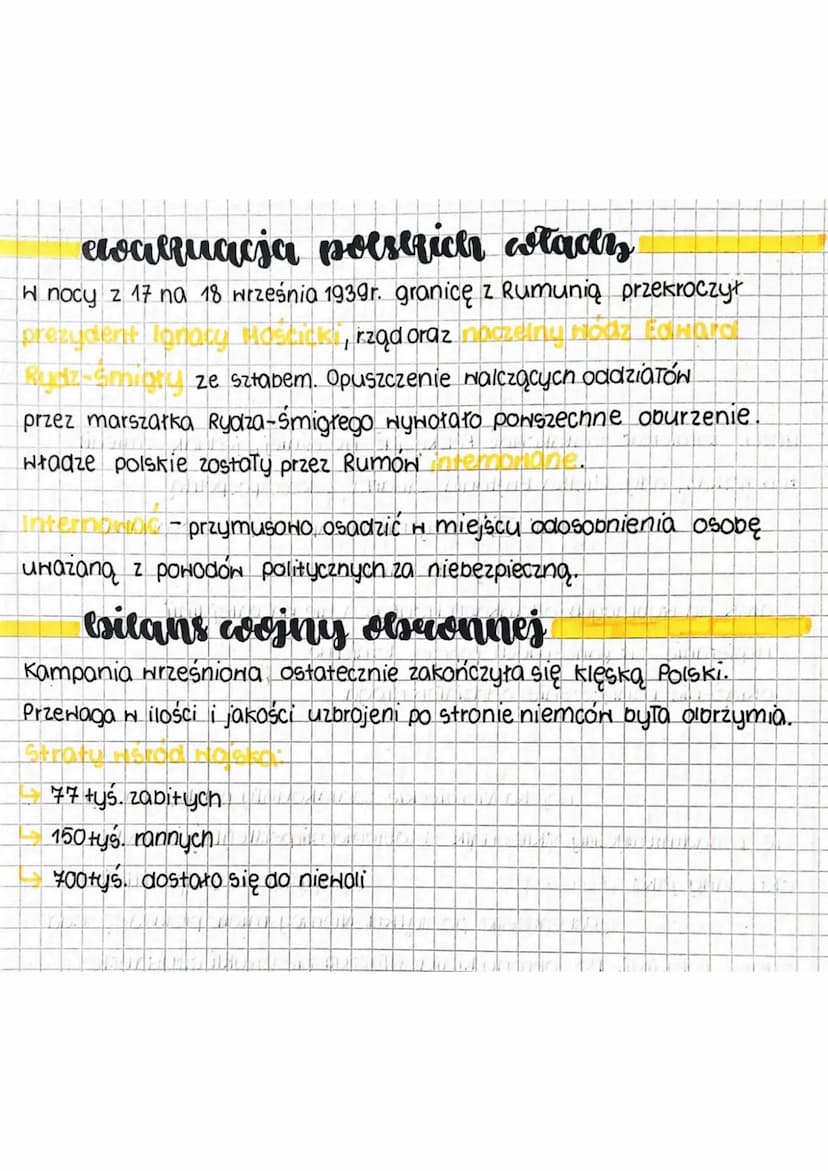 ewakuacja polskich władz
W nocy z 17 na 18 września 1939r. granicę z Rumunią przekroczył
prezydent Ignacy Mościcki, rząd oraz naczelny wódz Edward
Rydz-Śmigły ze sztabem. Opuszczenie walczących oddziałów
przez marszałka Rydza-Śmigłego wywołało powszechne oburzenie.
Władze polskie zostały przez Rumów internowane.
Internować - przymusowo osadzić w miejscu odosobnienia osobę
uważaną z powodów politycznych za niebezpieczną.
bilans wojny obronnej
Kampania wrześniowa ostatecznie zakończyła się klęską Polski.
Przewaga w ilości i jakości uzbrojeni po stronie niemców była olbrzymia.
Straty wśród wojska:
↳ 77 tyś. zabitych
↳ 150 tyś. rannych
↳ 700 tyś. dostało się do niewoli